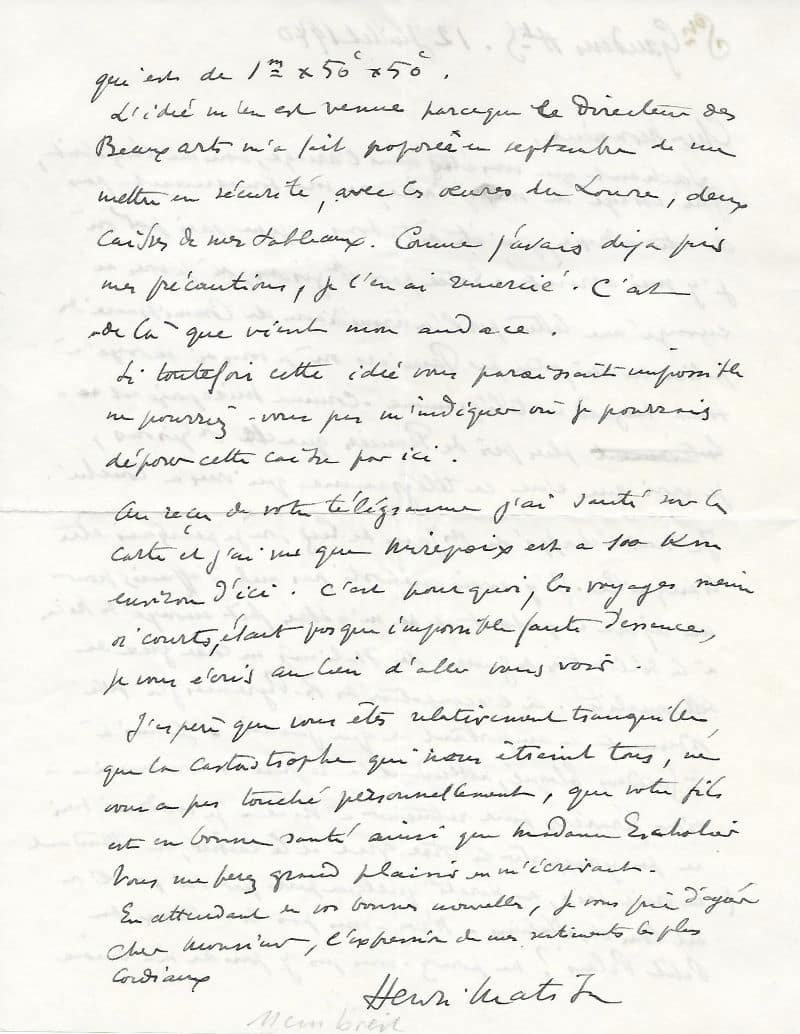 qui est de 1m x 50c x 50c.
L'idée m'en est venue parceque le Directeur des
Beaux arts m'a fait proposer en septembre de me
mettre en sécurité, avec les œuvres du Louvre, deux
caisses de mes tableaux. Comme j'avais déja pris
mes précautions, je l'en ai remercié. C'est
de là que vient mon audace.
Si toutefois cette idée vous paraissait impossible
ne pourriez-vous pas m'indiquer où je pourrais
déposer cette caisse par ici.
Au reçu de votre télégramme j'ai sauté sur la
carte et j'ai vu que Mirepoix est a 100 Km
environ d'ici. C'est pourquoi, les voyages même
si courts, étant presque impossible faute d'essence,
je vous écris au lieu d'aller vous voir.
J'espère que vous êtes relativement tranquilles,
que la castastrophe qui nous étreint tous, ne
vous a pas touché personnellement, que votre fils
est en bonne santé ainsi que Madame Escholier
Vous me ferez grand plaisir en m'écrivant.
En attendant de vos bonnes nouvelles, je vous prie d'agréer
cher Monsieur, l'expression de mes sentiments les plus
cordiaux
Henri-Matisse